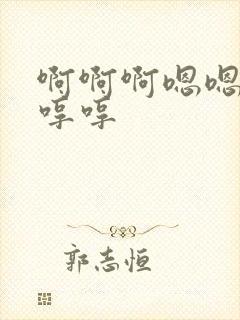 啊啊啊嗯嗯
哼哼
郭志恒